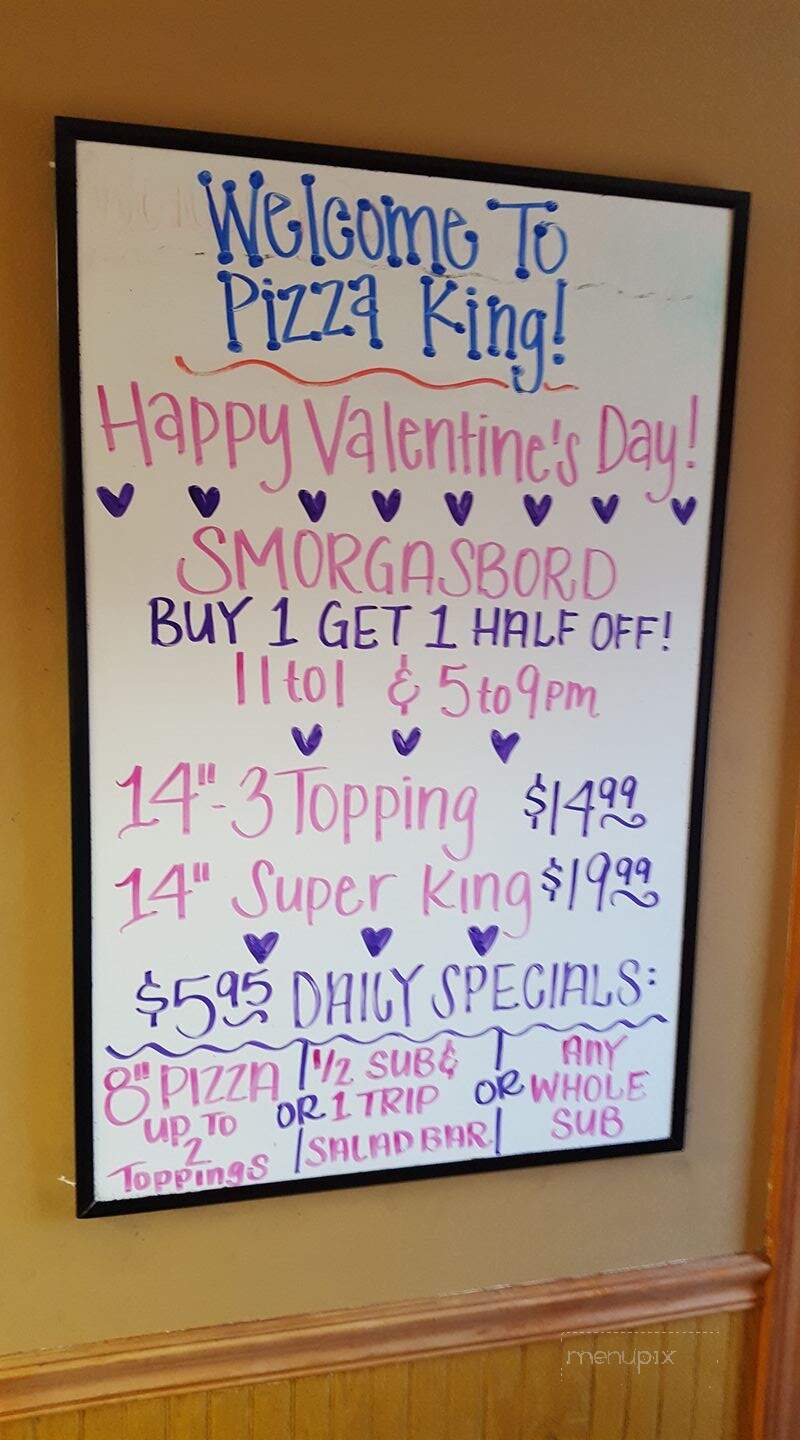 Welcome To
Pizza King!
Happy Valentine's Day!
SMORGASBORD
BUY 1 GET 1 HALF OFF!
11 to 1 & 5 to 9pm
14"-3 Topping $14.99
14" Super King $19.99
$5.95 DAILY SPECIALS:
8" PIZZA
UP TO
2
Toppings
OR
1/2 SUB &
1 TRIP
SALAD BAR
OR
ANY
WHOLE
SUB
menupix